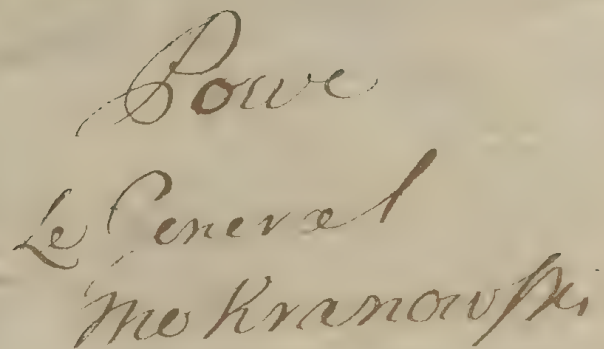 Pour
Le General
Mokranowski